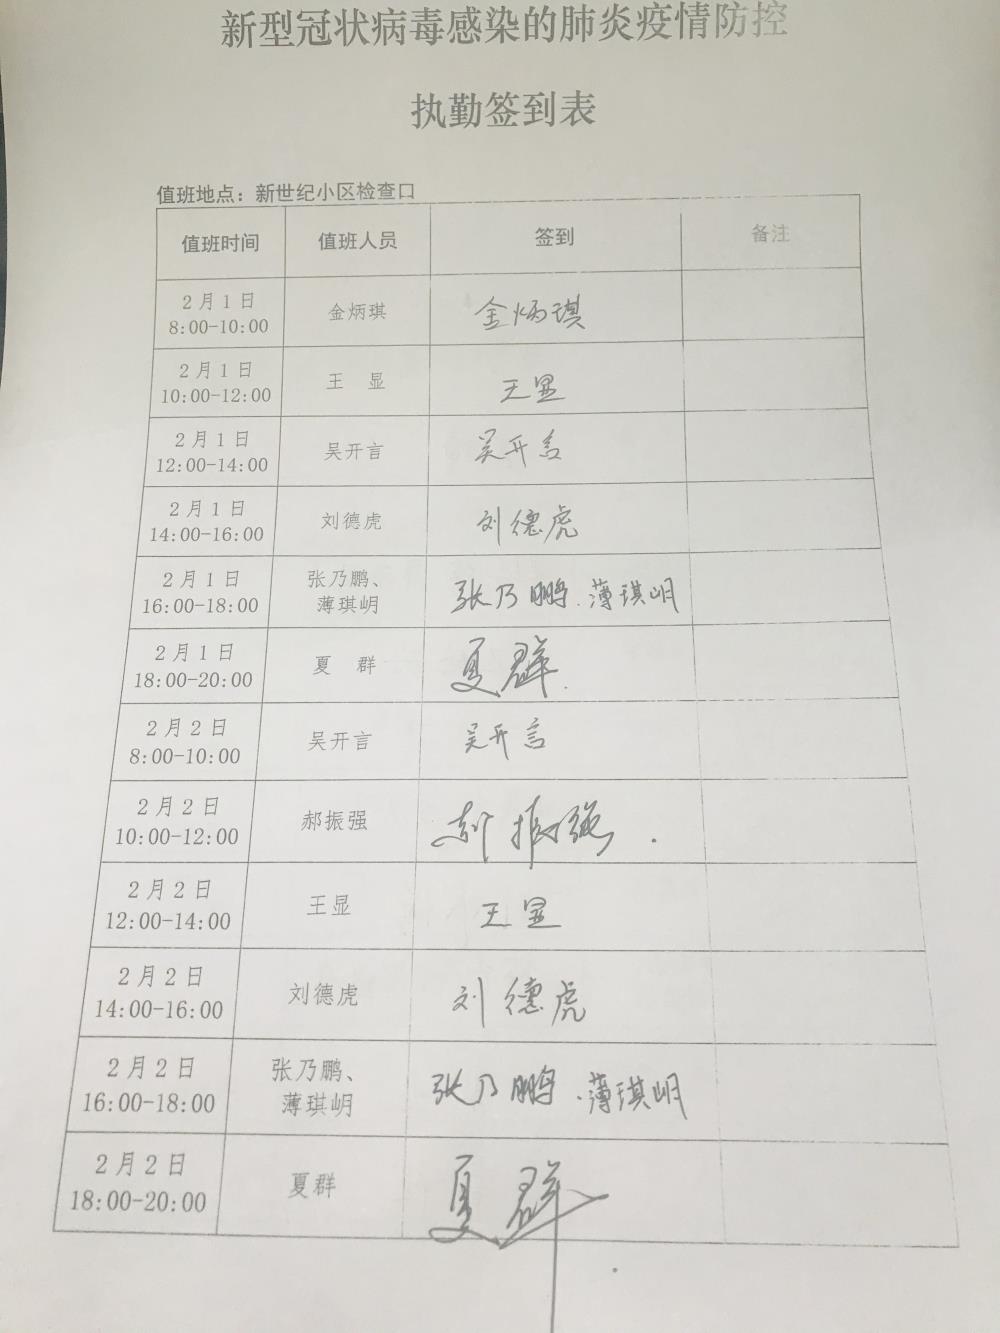 新型冠状病毒感染的肺炎疫情防控
执勤签到表
值班地点：新世纪小区检查口
值班时间 值班人员 签到 备注
2月1日
8:00-10:00 金炳琪 金炳琪
2月1日
10:00-12:00 王 显 王显
2月1日
12:00-14:00 吴开言 吴开言
2月1日
14:00-16:00 刘德虎 刘德虎
2月1日 张乃鹏、
16:00-18:00 薄琪岄 张乃鹏.薄琪岄
2月1日
18:00-20:00 夏 群 夏群.
2月2日
8:00-10:00 吴开言 吴开言
2月2日
10:00-12:00 郝振强 郝振强.
2月2日
12:00-14:00 王显 王显
2月2日
14:00-16:00 刘德虎 刘德虎
2月2日 张乃鹏、
16:00-18:00 薄琪岄 张乃鹏.薄琪岄
2月2日
18:00-20:00 夏群 夏群